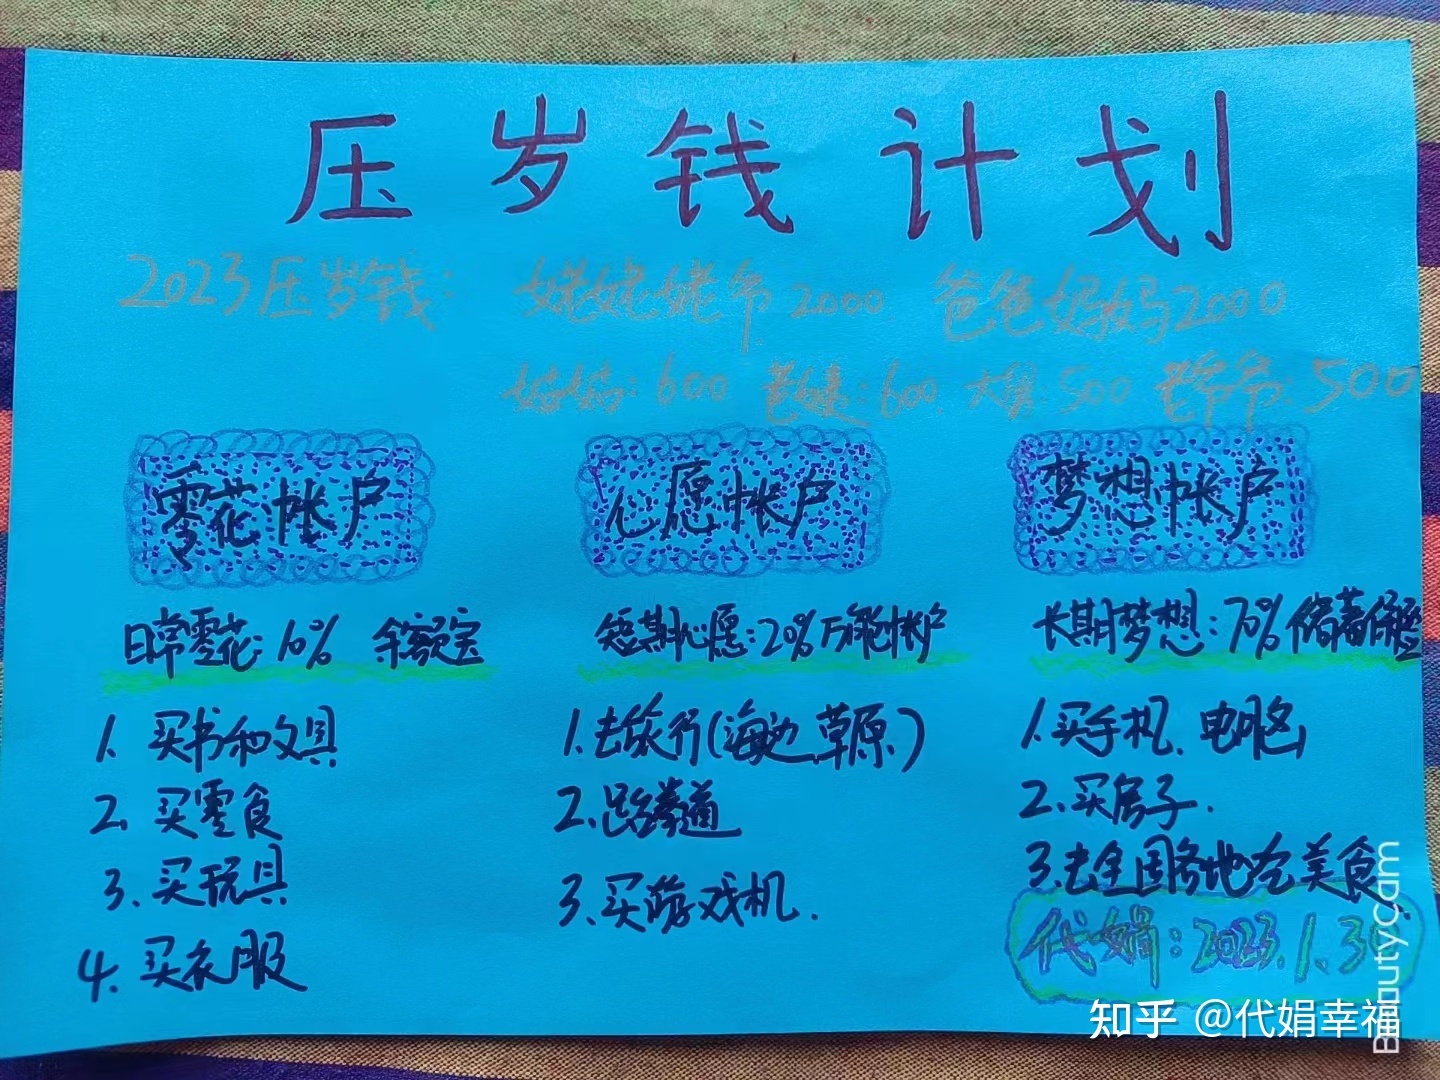 压岁钱计划
2023压岁钱: 姥姥姥爷2000. 爸爸妈妈2000
姑姑: 600 老姨: 600. 大舅: 500 老爷爷: 500
零花帐户 心愿帐户 梦想帐户
日常零花: 10% 余额宝 短期心愿: 20% 万能帐户 长期梦想: 70% 储蓄保险
1. 买书和文具 1. 去旅行(海边.草原.) 1. 买手机. 电脑
2. 买零食 2. 跆拳道 2. 买房子.
3. 买玩具 3. 买游戏机. 3. 去全国各地吃美食.
4. 买衣服
代娟: 2023.1.30
知乎 @代娟幸福
BeautyCam